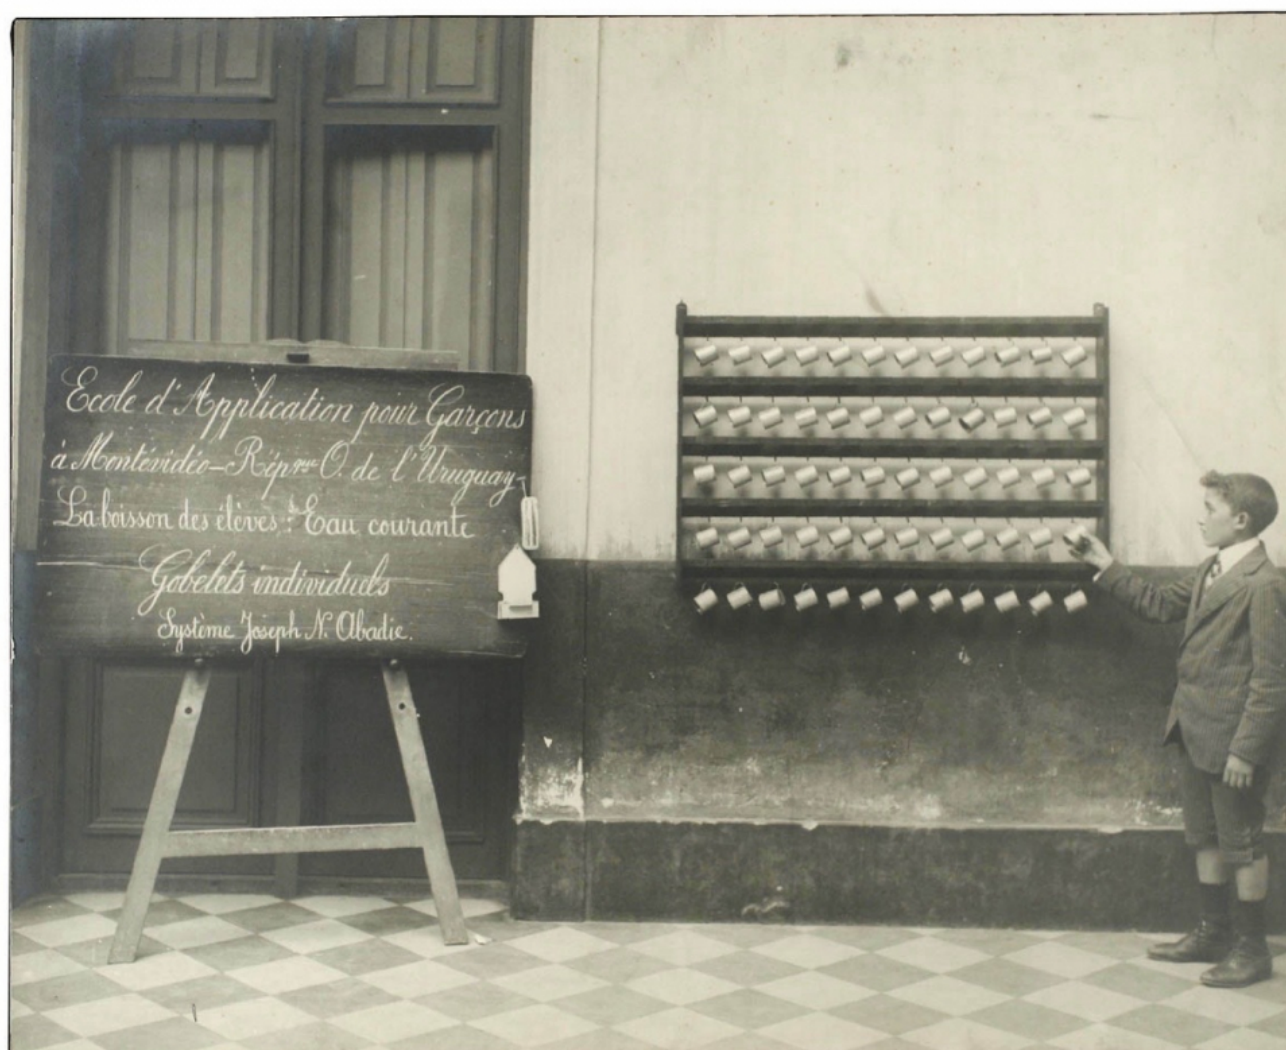 Ecole d'Application pour Garçons
à Montévidéo-Répque O. de l'Uruguay-
La boisson des élèves: Eau courante
Gobelets individuels
Système Joseph N. Abadie.